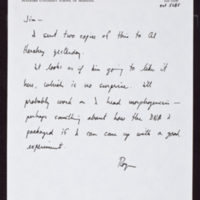 Jim—
I sent two copies of this to Al
Hershey yesterday.
It looks as if I'm going to like it
here, which is no surprise. Will
probably work on λ head morphogenesis—
perhaps something about how the DNA is
packaged if I can come up with a good
experiment.